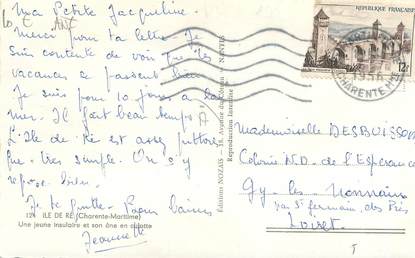 Ma Petite Jacqueline
Merci pour ta lettre. Je
suis contente de voir que les
vacances se passent bien
Je suis pour 10 jours à la
mer. Il fait beau temps
L'Ile de Ré est assez pittores
que très simple. On s'y
repose bien.
Je te quitte. Bons baisers
Jeannette
124 ILE DE RÉ (Charente-Maritime)
Une jeune insulaire et son âne en culotte
Editions NOZAIS - 38, NANTES
Reproduction interdite
REPUBLIQUE FRANÇAISE
12F
CHARENTE
Mademoiselle DESBUISSON
Colonie N.D. de l'Espérance
Gy les Nonnains
par St Germain des Prés
Loiret